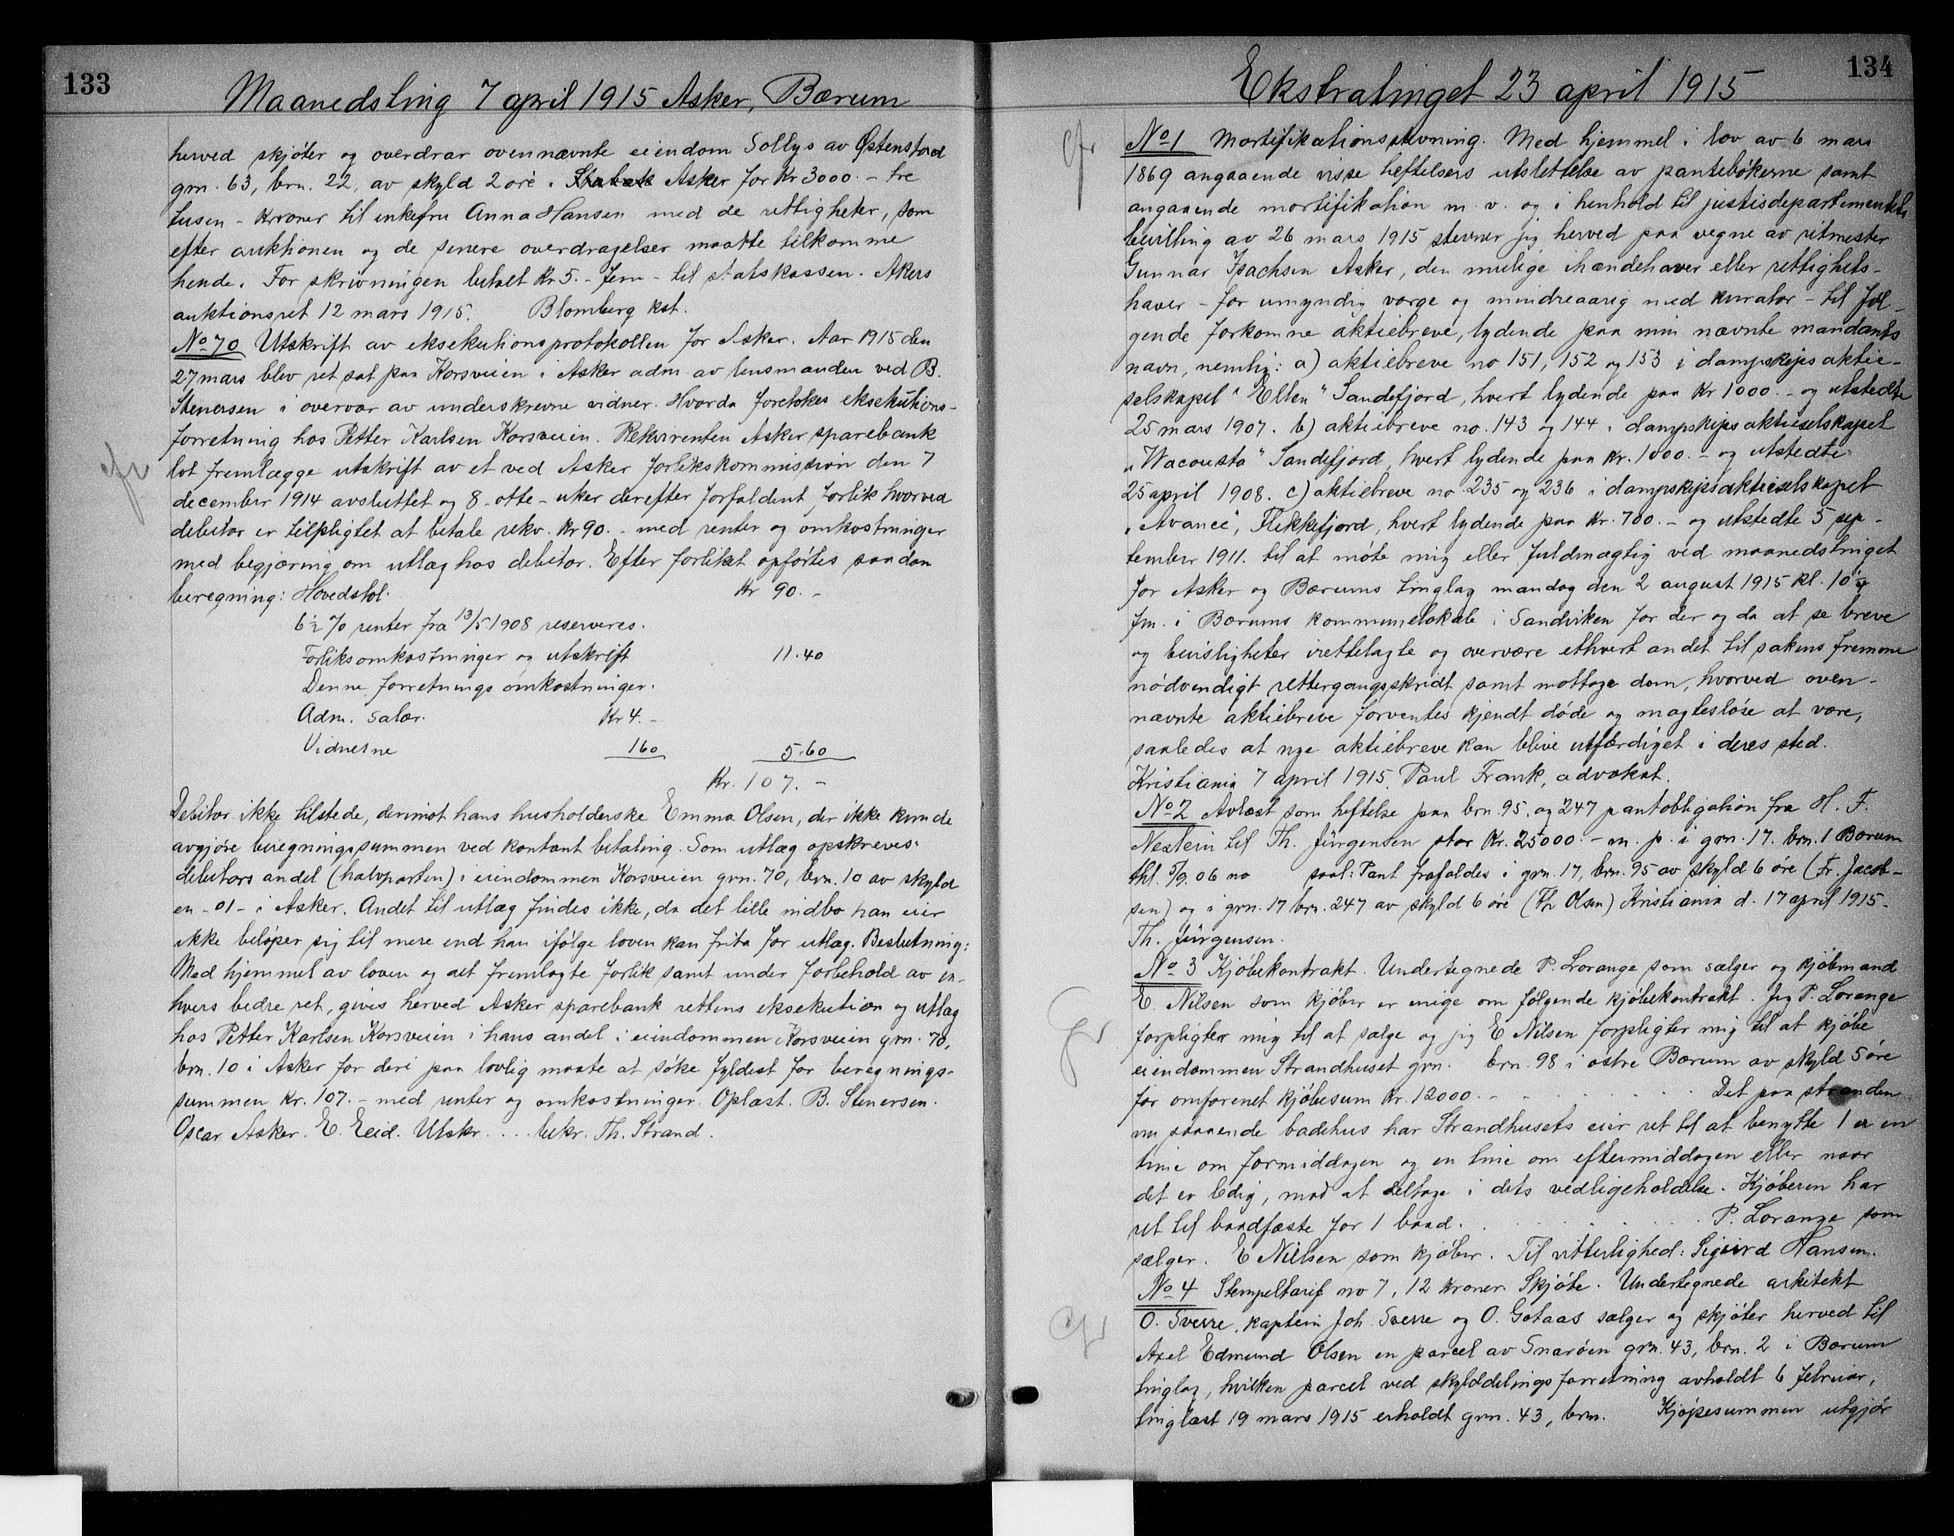 133
Maanedsting 7 april 1915 Asker, Bærum
herved skjøter og overdrar ovennævnte eiendom Sollys av Østensstad
grn. 63, brn. 22, av skyld 2 øre i Asker for Kr 3000.- tre
tusen - Kroner til enkefru Anna Hansen med de rettigheter, som
efter auktionen og de senere overdragelser maatte tilkomme
hende. For skrivningen betalt Kr 5.- fem - til statskassen. Akers
auktionsret 12 mars 1915. Blomberg kst.
No 70 Utskrift av eksekutionsprotokollen for Asker. Aar 1915 den
27 mars blev ret sat paa Korsveien i Asker adm. av lensmanden ved B.
Stenersen i overvær av underskrevne vidner. Hvorda foretokes eksekutions-
forretning hos Petter Karlsen Korsveien. Rekvirenten Asker sparebank
lot fremlægge utskrift av et ved Asker forlikskommission den 7
december 1914 avsluttet og 8 - otte - uker derefter forfaldent forlik hvorved
debitor er tilpligtet at betale rekv. Kr 90.- med renter og omkostninger
med begjæring om utlæg hos debitor. Efter forliket opførtes saadan
beregning: Hovedstol. Kr 90.-
6½ % renter fra 13/5 1908 reserveres.
Forliksomkostninger og utskrift 11.40
Denne forretnings omkostninger.
Adm. salær. Kr 4.-
Vidnerne 1 60 5.60
Kr. 107.-
Debitor ikke tilstede, derimot hans husholderske Emma Olsen, der ikke kunde
avgjøre beregningssummen ved kontant betaling. Som utlæg opskreves:
debitors andel (halvparten) i eiendommen Korsveien grn. 70, brn. 10 av skyld
en - 01 - i Asker. Andet til utlæg findes ikke, da det lille indbo han eier
ikke beløper sig til mere end han ifølge loven kan frita for utlæg. Beslutning:
Med hjemmel av loven og det fremlagte forlik samt under forbehold av en-
hvers bedre ret, gives herved Asker sparebank rettens eksekution og utlæg
hos Petter Karlsen Korsveien i hans andel i eiendommen Korsveien grn. 70,
brn. 10 i Asker for deri paa lovlig maate at søke fyldest for beregnings-
summen Kr. 107.- med renter og omkostninger. Oplæst. B. Stenersen.
Oscar Asker. E. Eeid. Utskr. . . . bekr. Th. Strand.
134
Ekstratinget 23 april 1915
cfr
No 1 Mortifikationsstevning. Med hjemmel i lov av 6 mars
1869 angaaende visse heftelsers utslettelse av pantebøkerne samt
angaaende mortifikation m. v. og i henhold til justisdepartementets
bevilling av 26 mars 1915 stevner jeg herved paa vegne av ritmester
Gunnar Isachsen Asker, den mulige ihændehaver eller rettighets-
haver - for umyndig værge og mindreaarig med kurator - til føl-
gende forkomne aktiebreve, lydende paa min nævnte mandants
navn, nemlig: a) aktiebreve no 151, 152 og 153 i dampskipsaktie-
selskapet "Ellen" Sandefjord, hvert lydende paa Kr 1000.- og utstedte
25 mars 1907. b) aktiebreve no. 143 og 144 i dampskipsaktieselskapet
"Wacousta" Sandefjord, hvert lydende paa Kr. 1000.- og utstedte
25 april 1908. c) aktiebreve no 235 og 236 i dampskipsaktieselskapet
"Avance", Flekkefjord, hvert lydende paa Kr. 700.- og utstedte 5 sep-
tember 1911. til at møte mig eller fuldmægtig ved maanedstinget
for Asker og Bærums tinglag mandag den 2 august 1915 kl. 10½
fm. i Bærums kommunelokale i Sandviken for der og da at se breve
og bevisligheter irettelagte og overvære ethvert andet til sakens fremme
nødvendigt rettergangsskridt samt mottage dom, hvorved oven-
nævnte aktiebreve forventes kjendt døde og magtesløse at være,
saaledes at nye aktiebreve kan blive utfærdiget i deres sted.
Kristiania 7 april 1915. Paul Frank, advokat.
No 2 Avlæst som heftelse paa brn. 95 og 247 pantobligation fra H. F.
til Th. Jürgensen stor Kr. 25000.- m. p. i grn. 17. brn. 1 Bærum
thl. 5/9. 06 no saal: Pant frafaldes i grn. 17, brn. 95 av skyld 6 øre (Fr. Jacob-
sen) og i grn. 17 brn. 247 av skyld 6 øre (Th Olsen) Kristiania d. 17 april 1915.
Th. Jürgensen.
No 3 Kjøbekontrakt. Undertegnede P. Lorange som sælger og kjøbmand
E. Nilsen som kjøber er enige om følgende kjøbekontrakt. Jeg P. Lorange
forpligter mig til at sælge og jeg E Nilsen forpligter mig til at kjøbe
eiendommen Strandhuset grn. brn. 98 i østre Bærum av skyld 5 øre
for omforenet kjøbesum Kr. 12000.- . . . . . . Det paa stranden
nu staaende badehus har Strandhusets eier ret til at benytte 1 en
time om formiddagen og en time om eftermiddagen eller naar
det er ledig, mod at deltage i dets vedligeholdelse. Kjøberen har
ret til baadfæste for 1 baad. . . . . . . . . P. Lorange som
sælger. E Nielsen som kjøber. Til vitterlighed: Sigurd Hansen.
No 4 Stempeltarif no 7, 12 kroner. Skjøte. Undertegnede arkitekt
O. Sverre, kaptein Joh. Sverre og O. Gotaas sælger og skjøter herved til
Axel Edmund Olsen en parcel av Snarøen grn. 43, brn. 2 i Bærum
tinglag, hvilken parcel ved skylddelingsforretning avholdt 6 februar,
tinglæst 19 mars 1915 erholdt grn. 43, brn. Kjøpesummen utgjør